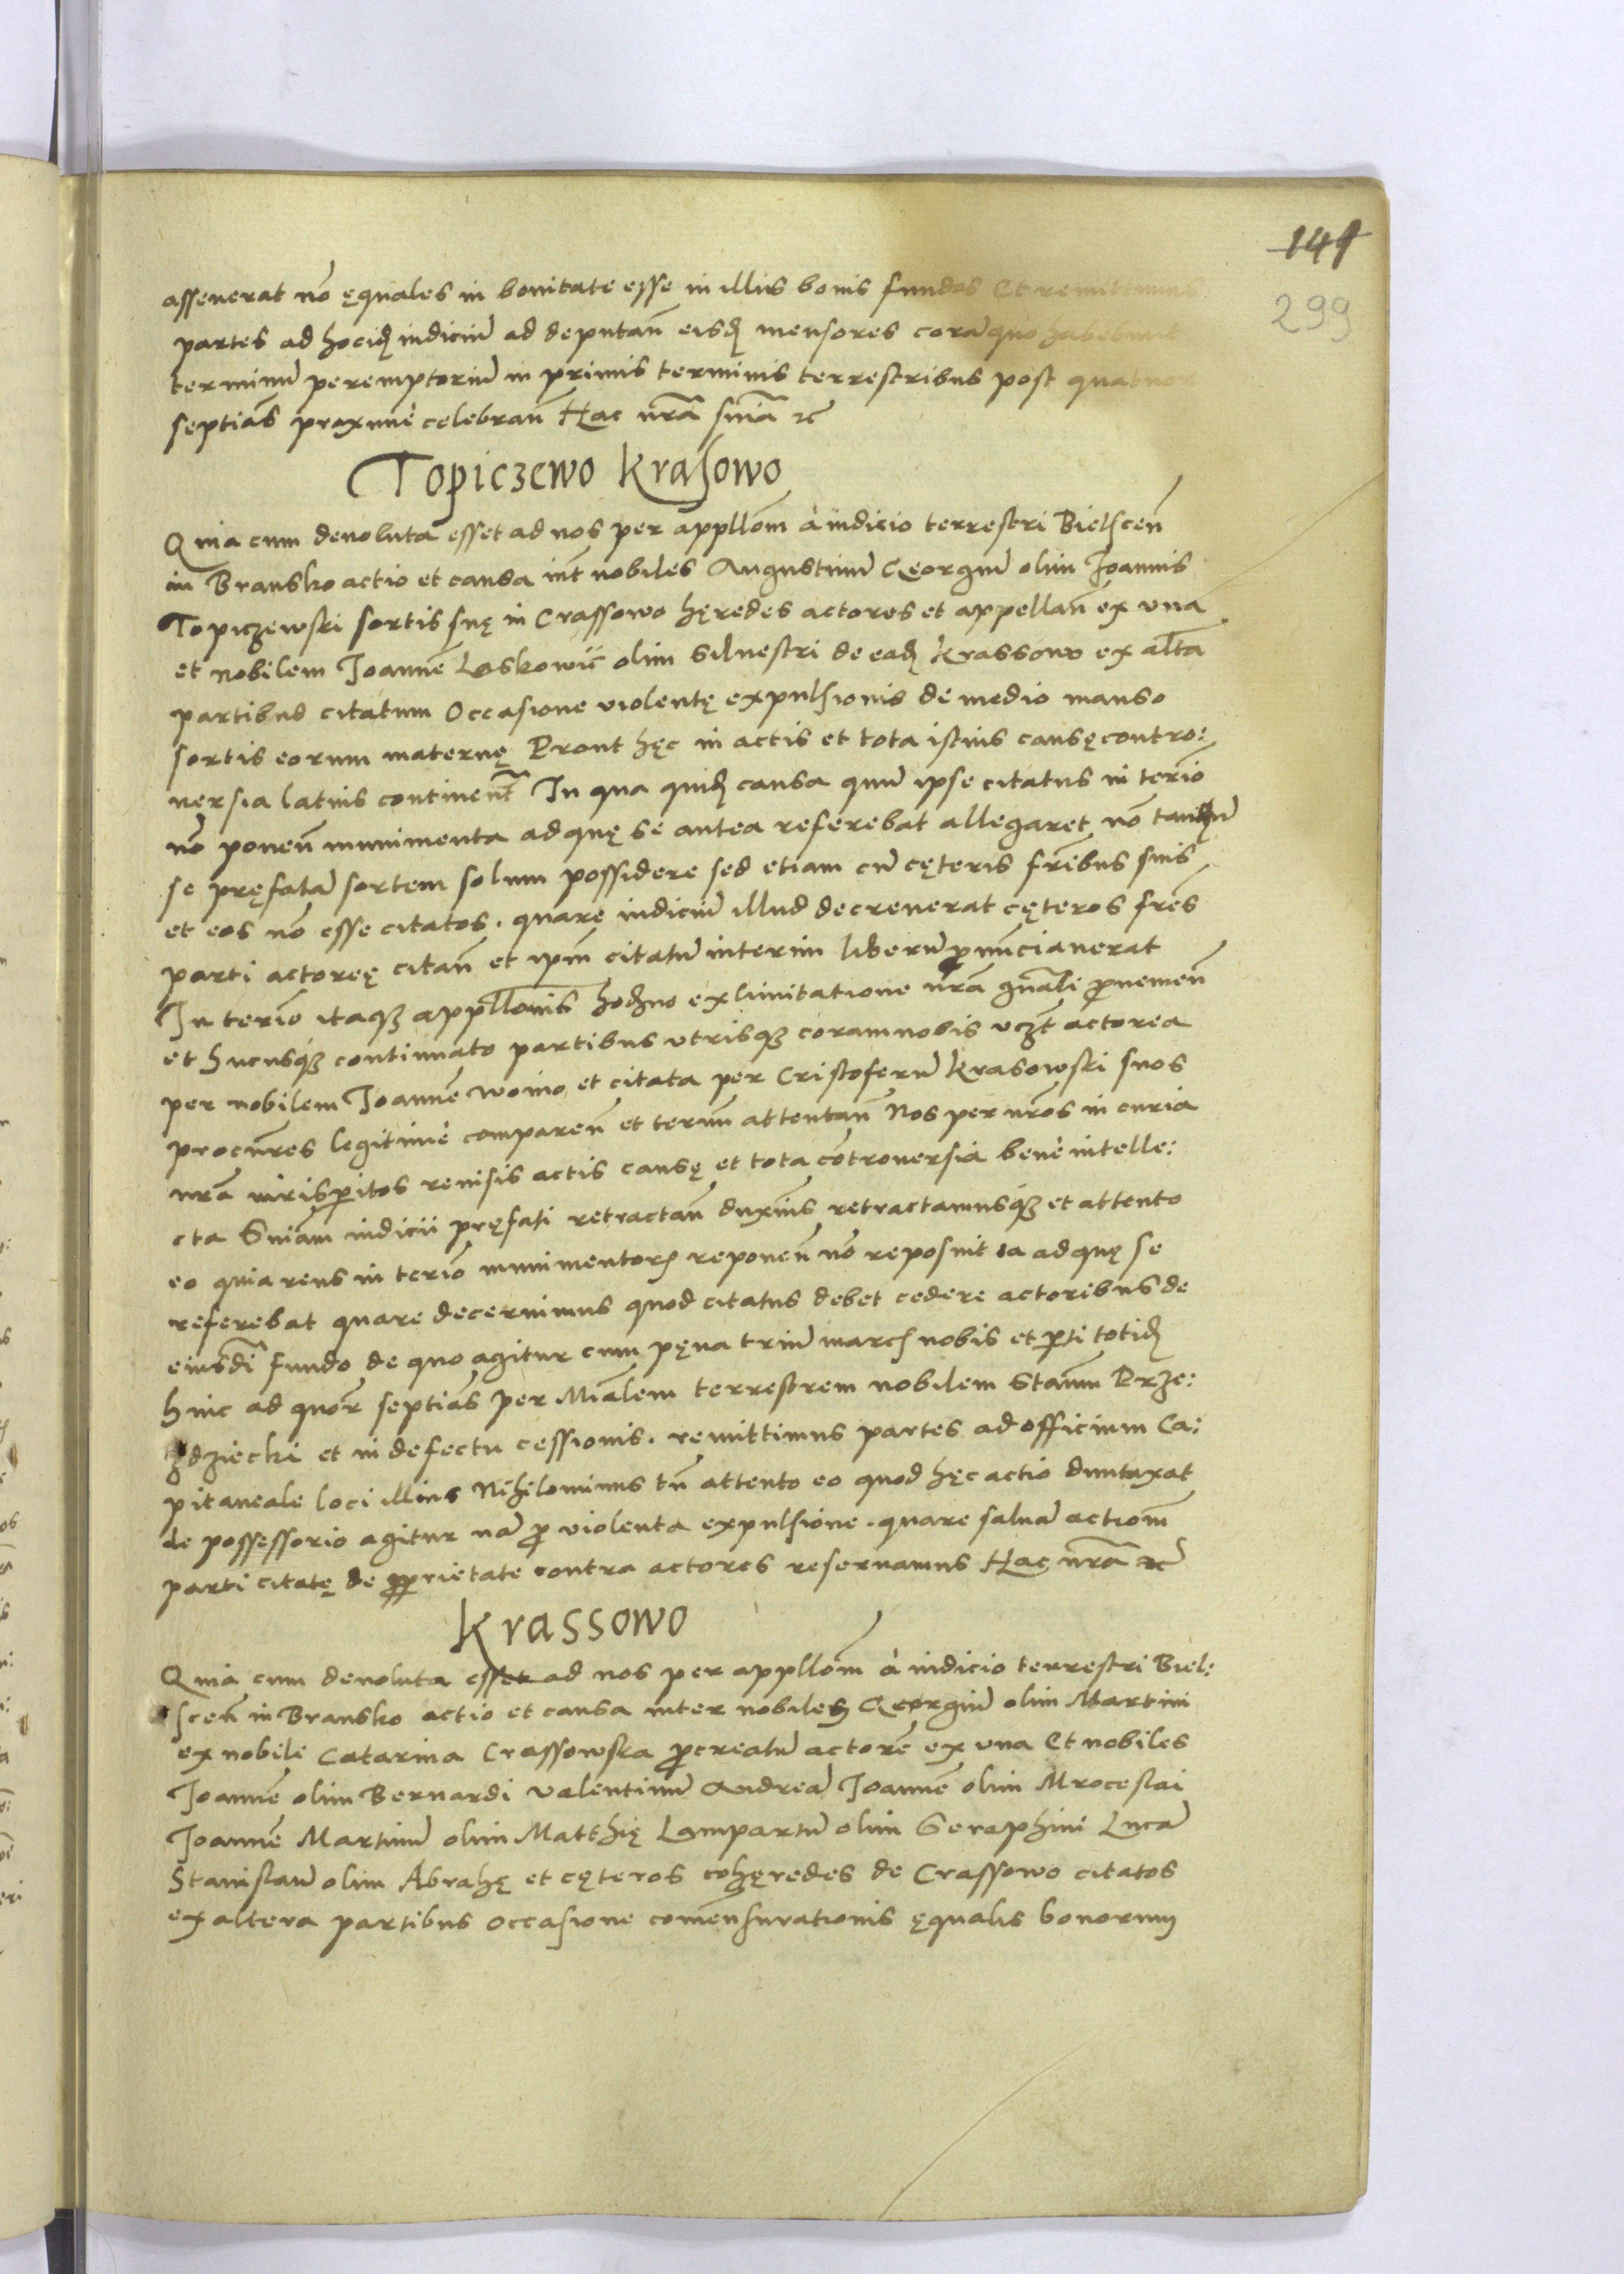 141
299
asseuerat nõ ęquales in bonitate esse in illis bonis fundos Et remittimus
partes ad hocidem iudiciũ ad deputañ eisdem mensores corã quo habebunt
terminũ peremptoriũ in primis terminis terrestribus post quatuor
septiãs proxime celebrañ Hac nrã sniã etc
Topiczewo Krasowo
Quia cum deuoluta esset ad nos per appllõm à iudicio terrestri Bielsceñ
in Bransko actio et causa int̃ nobiles Augustinũ Georgiũ olim Joannis
Topiczewski sortis suę in Crassowo hęredes actores et appellañ ex vna
et nobilem Joannẽ Loskowic̃ olim Siluestri de eadem Krassowo ex alt̃a
partibus citatum Occasione violentę expulsionis de medio manso
sortis eorum maternę Prout hęc in actis et tota istius causę contro:
uersia latius continent̃ In qua quidem causa quũ ipse citatus in terĩo
nõ ponẽn munimenta ad quę se antea referebat allegaret nõ tantũ
se pręfatã sortem solum possidere sed etiam cũ cęteris fr̃ibus suis
et eos nõ esse citatos. quare iudiciũ illud decreuerat cęteros frẽs
parti actoreę citañ et ipm̃ citatũ interim liberũ pronũciauerat
In terĩo itaque appllõnis hodierno ex limitatione nrã gñali proueneñ
et hucusque continuato partibus vtrisque coram nobis vczt̃ actorea
per nobilem Joannẽ Woino et citata per Cristoferũ Krasowski suos
procũres legitimè compareñ et termĩ attentañ Nos per nrõs in curia
nrã iurisperitos reuisis actis causę et tota cõtrouersia benè intelle:
cta Sniãm iudicii pręfati retractañ duxim̃us retractamusque et attento
eo quia reus in terĩo munimentorum reponeñ nõ reposuit ea ad quę se
referebat quare decernimus quod citatus debet cedere actoribus de
eiusdm̃i fundo de quo agitur cum pęna triũ marcarum nobis et parti totidem
hinc ad quor̃ septiãs per Miãlem terrestrem nobilem Stañm Prze:
zdziecki et in defectu cessionis. remittimus partes ad officium Ca:
pitaneale loci illius Nihilominus tñ attento eo quod hęc actio duntaxat
de possessorio agitur uã pro violenta expulsione. quare saluã actiõm
parti citatę de proprietate contra actores reseruamus Hac nrã etc
Krassowo
Quia cum deuoluta esset ad nos per appllõm à iudicio terrestri Biel:
sceñ in Bransko actio et causa inter nobiles Georgiũ olim Martini
ex nobili Catarina Crassowska procreatũ actorẽ ex vna Et nobiles
Joannẽ olim Bernardi Valentinũ Andreã Joannẽ olim Mroceslai
Joannẽ Martinũ olim Matthię Lampartũ olim Seraphini Lucã
Stanislaũ olim Abrahę et cęteros cohęredes de Crassowo citatos
ex altera partibus occasione comẽnsurationis ęqualis bonorum